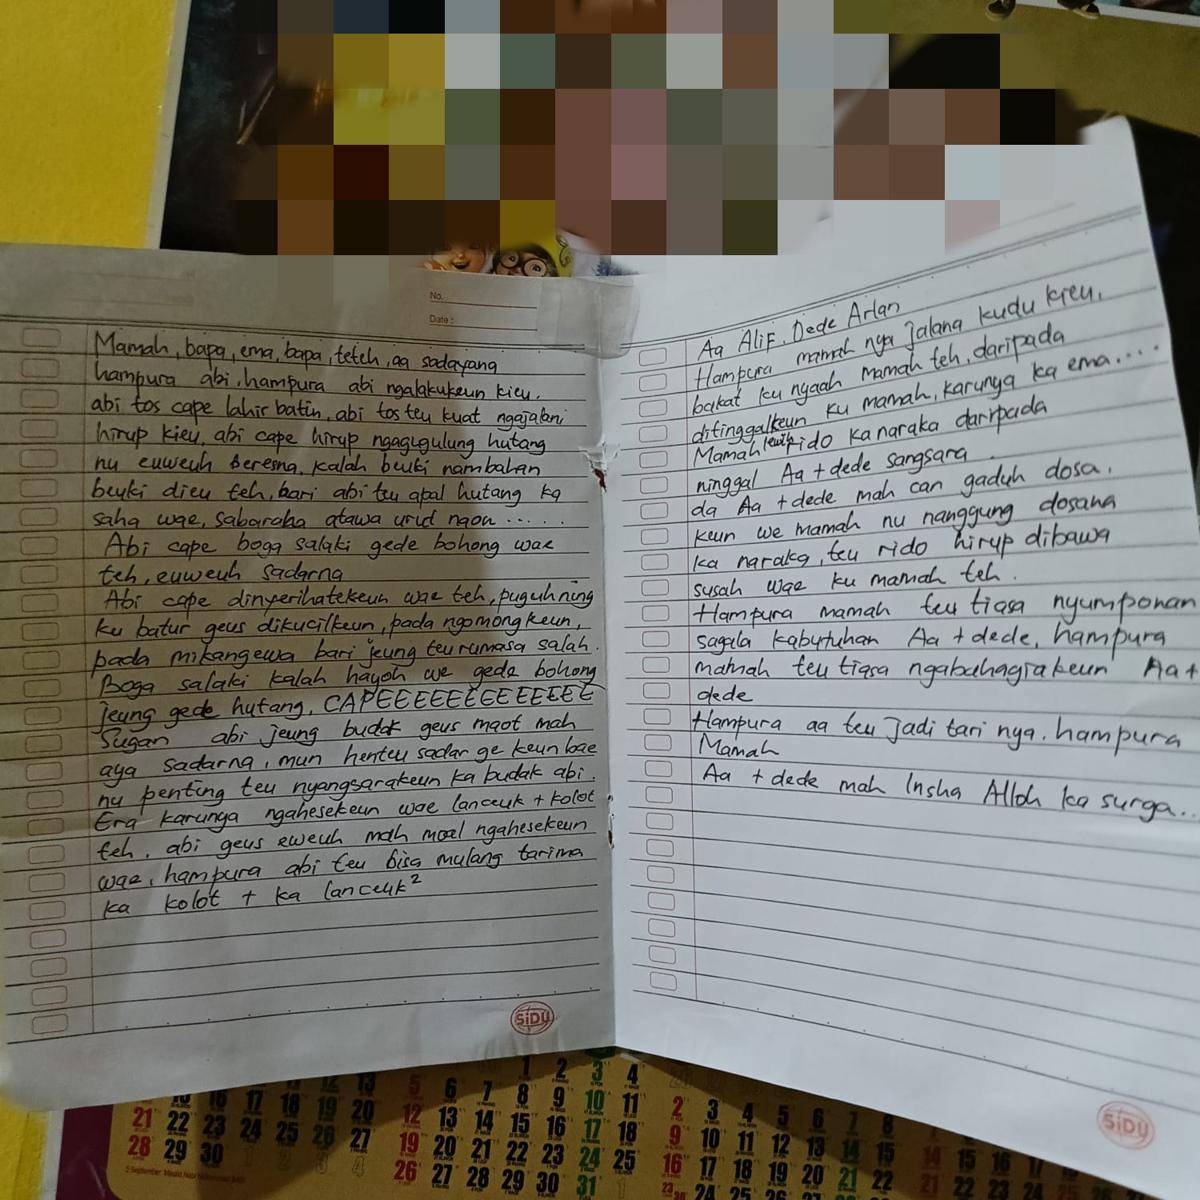 No.
Date :
Mamah, bapa, ema, bapa, teteh, aa sadayana
hampura abi, hampura abi ngalakukeun kieu.
abi tos cape lahir batin, abi tos teu kuat ngajalani
hirup kieu, abi cape hirup ngagugulung hutang
nu euweuh beresna, kalah beuki nambahan
beuki dieu teh, bari abi teu apal hutang ka
saha wae, sabaraha atawa urud naon .....
Abi cape boga salaki gede bohong wae
teh, euweuh sadarna
Abi cape dinyerihatekeun wae teh, puguh ning
ku batur geus dikucilkeun, pada ngomongkeun,
pada mikangewa bari jeung teu rumasa salah.
Boga salaki kalah hayoh we gede bohong
jeung gede hutang, CAPEEEEEEEEEEEEEE
Sugan abi jeung budak geus maot mah
aya sadarna, mun henteu sadar ge keun bae
nu penting teu nyangsarakeun ka budak abi.
Era karunya ngahesekeun wae lanceuk + kolot
teh, abi geus eweuh mah moal ngahesekeun
wae, hampura abi teu bisa mulang tarima
ka kolot + ka lanceuk²
SiDU
Aa Alif. Dede Arlan
Hampura mamah nya jalana kudu kieu.
bakat ku nyaah mamah teh, daripada
ditinggalkeun ku mamah, karunya ka ema....
Mamah leuih rido ka naraka daripada
ninggal Aa + dede sangsara.
da Aa + dede mah can gaduh dosa.
keun we mamah nu nanggung dosana
ka naraka, teu rido hirup dibawa
susah wae ku mamah teh.
Hampura mamah teu tiasa nyumponan
sagala kabutuhan Aa + dede, hampura
mamah teu tiasa ngabahagiakeun Aa +
dede
Hampura aa teu jadi tari nya. hampura
Mamah
Aa + dede mah Insha Alloh ka surga..
SiDU
1 2 3 4
12 13 5 6 7 8 9 10 11
16 17 18 19 20 12 13 14 15 16 17 18 2 3 4 5 6 7 8
21 22 23 24 25 26 27 19 20 21 22 23 24 25 9 10 11 12 13 14 15
28 29 30 26 27 28 29 30 31 16 17 18 19 20 21 22
23 24 25 26 27 28 29